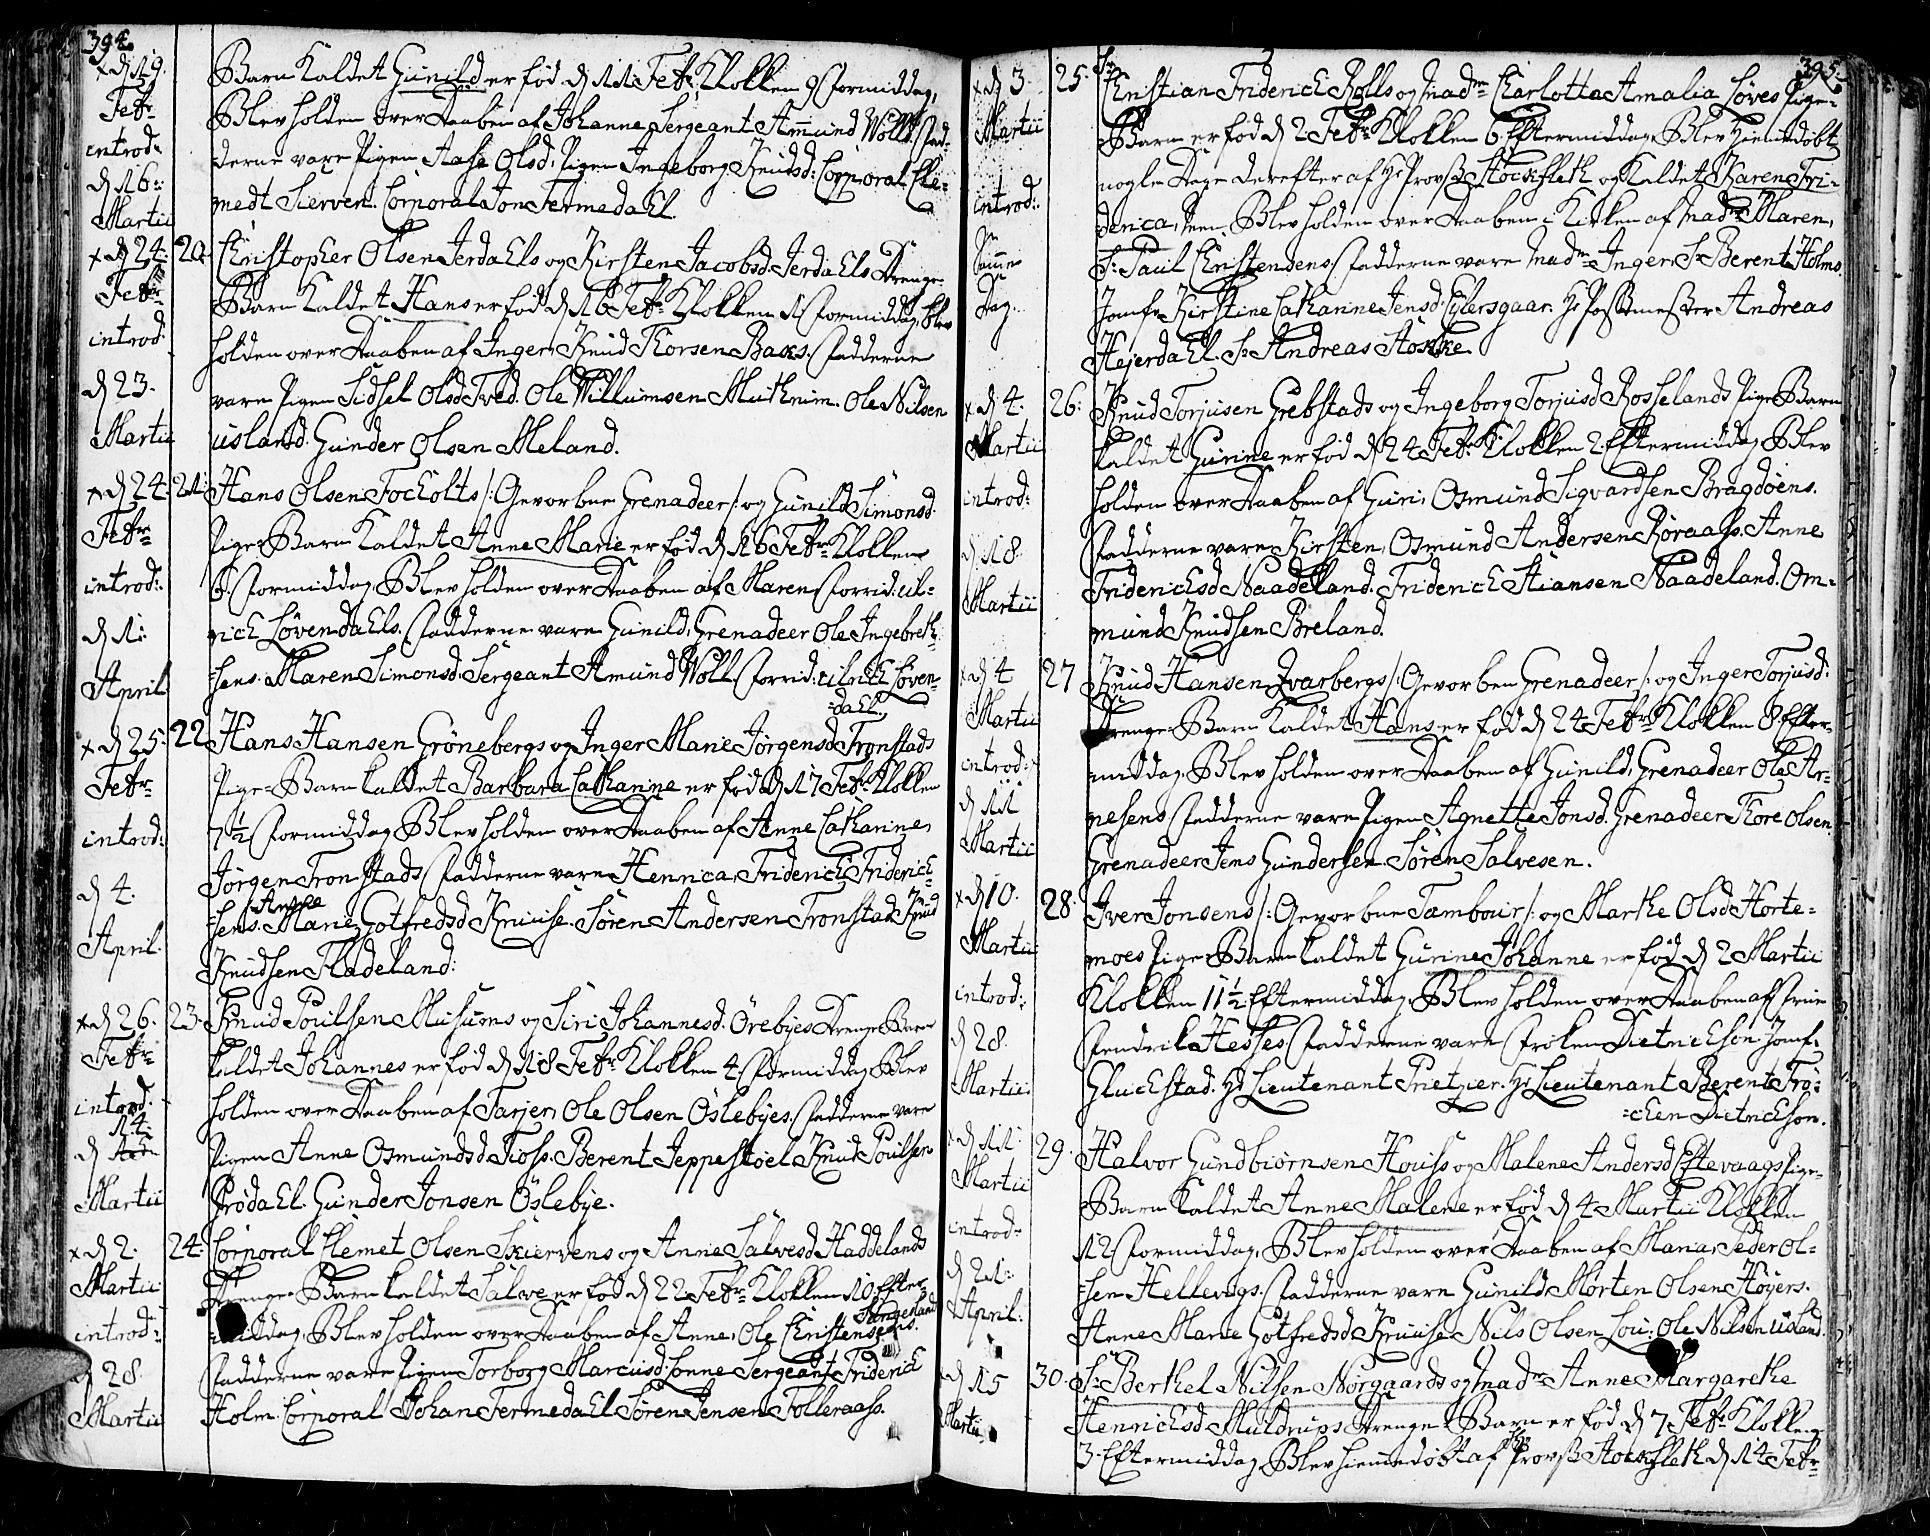 394.
x d 19.
Febr
introd:
d 16:
Martii
Barn Kaldet Gunild er fød d 11 Febr Klokken 9 Formiddag,
Blev holden over Daaben af Johanne, Sergeant Ammund Wolls. Fad-
derne vare Pigen Aase Olsd: Pigen Ingeborg Knudsd: Corporal Kle-
medt Sierven. Corporal Jon Fermedahl.
x d 24.
Febr
introd:
d 23.
Martii
20. Christopher Olsen Jerdahls og Kirsten Jacobsd Jerdahls Drenge-
Barn Kaldet Hans er fød d 16 Febr Klokken 1 Formiddag, blev
holden over Daaben af Inger, Knud Thorsen Baas. Fadderne
vare Pigen Sidsel Olsd Tved. Ole Willumsen Mutheim. Ole Nilsen
Uusland. Gunder Olsen Meland.
x d 24.
Febr
introd:
d 1:
April
21. Hans Olsen Focholts /: Gevorben Grenadeer :/ og Gunild Simonsd
Pige-Barn Kaldet Anne Marie er fød d 16 Febr Klokken
6. Formiddag, Blev holden over Daaben af Maren, Forrid: Ul-
rich Løvendahls. Fadderne vare Gunild, Grenadeer Ole Ingebreth-
sens. Maren Simonsd. Sergeant Amund Woll. Forrid: Ulrich Løven-
dahl.
x d 25.
Febr
introd:
d 4.
April.
22 Hans Hansen Grønebergs og Inger Marie Jørgensd Tronstads
Pige-Barn kaldet Barbara Cathrine er fød d 17 Febr Klokken
7½ Formiddag Blev holden over Daaben af Anne Cathrine,
Jørgen Tronstads Fadderne vare Henrica, Friderich Friderich-
sens. Anne Marie Gotfredsd Kruuse. Søren Andersen Tronstad. Knud
Knudsen Fladeland:
x d 26.
Febr
introd.
14.
d
Martii
23. Knud Poulsen Mushums og Siri Johannesd. Ørebyes Drenge-Barn
kaldet Johannes er fød d 18 Febr Klokken 4. Formiddag, Blev
holden over Daaben af Tarjer, Ole Olsen Øslebyes. Fadderne vare
Pigen Anne Osmundsd Fioss. Berent Jeppestøel. Knud Poulsen
Prødahl. Gunder Jonsen Øslebye.
x d 2.
Martii
introd:
d 28.
Martii
24. Corporal Klemet Olsen Skiervens og Anne Salvesd Haddelands
Drenge-Barn kaldet Salve er fød d 22 Febr Klokken 10 Efter-
middag, Blev holden over Daaben af Anne, Ole Christensens. Sangeland
Fadderne vare Pigen Torborg Marcusd: Lonne. Sergeant Friderich
Holm. Corporal Johan Fermedahl. Søren Jensen Tolleraass.
395.
x d 3.
Martii
introd:
Samme
Dag.
25. Sr Christian Friderich Rolls og Madm Charlotta Amalia Løves Pige-
Barn er fød d 2 Febr Klokken 6. Eftermiddag, Blev hiemmedøbt
nogle Dage derefter af Hr Provst Stockfleth og Kaldet Karen Fri-
derica, Blev holden over Daaben i Kirken af Madm Maren,
Sr Paul Christensens. Fadderne vare Madm Inger, Sr Berent Holms.
Jomfr Kirstine Cathrine Jensd. Eylersgaar. Hr Postmester Andreas
Heyerdahl. Sr Andreas Stokke.
x d 4.
Martii
introd:
d 18.
Martii
26. Knud Torjusen Grebstads og Ingeborg Torjusd Rosselands Pige-Barn
kaldet Gurine er fød d 24 Febr Klokken 2. Eftermiddag, Blev
holden over Daaben af Guri, Osmund Sigvardsen Bragdøens.
Fadderne vare Kirsten, Osmund Andersen Røraass. Anne
Friderichsd Naadeland. Friderich Stiansen Naadeland. Om-
mund Knudsen Breland.
x d 4
Martii
introd:
d 11
Martii
27 Knud Hansen Qvarbergs /: Gevorben Grenadeer :/ og Inger Torjusd:
Drenge-Barn Kaldet Hans er fød d 24 Febr Klokken 8 Efter-
middag, Blev holden over Daaben af Gunild, Grenadeer Ole Ar-
nesens Fadderne vare Pigen Agnette Jonsd. Grenadeer Thore Olsen.
Grenadeer Jens Gundersen. Søren Salvesen.
x d 10.
Martii
introd:
d 28.
Martii
28. Iver Jonsens /: Gevorben Tambour :/ og Marthe Olsd Horte-
moes Pige-Barn kaldet Gurine Johanne er fød d 2 Martii
Klokken 11½ Eftermiddag, Blev holden over Daaben af Frue
Fendrik Hesses Fadderne vare Frøken Dietrichson. Jomf:
Gluckstad. Hr Lieutenant Prietzier. Hr Lieutenant Berent Frø-
chen Dietrichson.
x d 11.
Martii
introd:
d 21:
April.
29. Halvor Gundbiørnsen Houss og Malene Andersd Eftevaags Pige-
Barn Kaldet Anne Malene er fød d 4 Martii Klokken
12 Formiddag, Blev holden over Daaben af Maria, Peder Ol-
sen Hellevigs. Fadderne vare Gunild, Morten Olsen Høyers.
Anne Marie Gotfredsd Kruuse. Nils Olsen Lou: Ole Nilsen Uusland.
d 15
Martii
30. Sr Berthel Nilsen Nørgaards og Madm Anne Margarethe
Henrichsd Muldrups Drenge-Barn er fød d 7 Febr Klokken
3. Eftermiddag, Blev hiemmedøbt af Hr Provst Stockfleth d 14 Febr